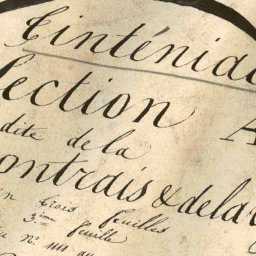 Tinténiac
Section A
dite de la
ontrais & dela
in trois feuilles
3ème feuille
n°